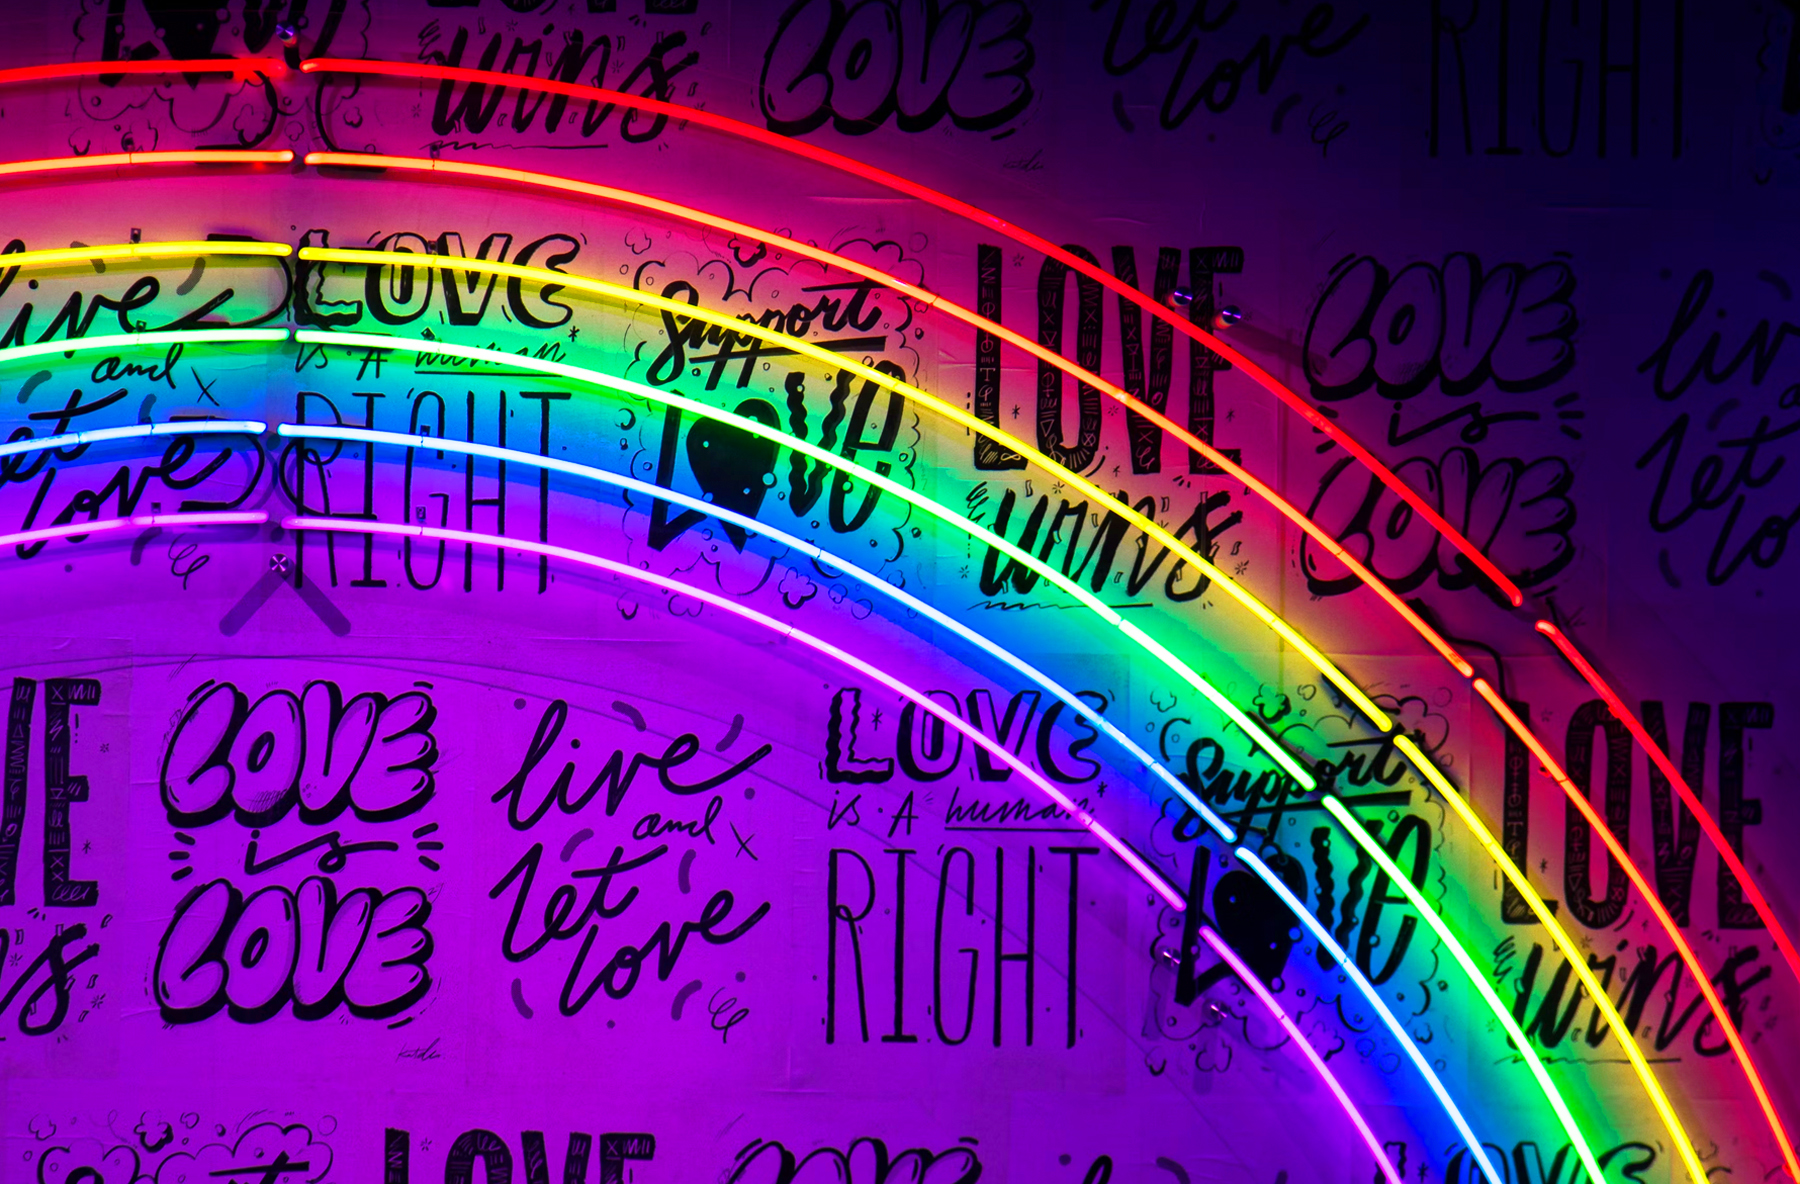 Love
wins
LOVE
let
love
RIGHT
live
and
let
love
LOVE
is A human
RIGHT
Support
Love
LOVE
wins
LOVE
is
LOVE
liv
let
lo
VE
ns
LOVE
is
LOVE
live
and
let
love
LOVE
is A human
RIGHT
Support
Love
LOVE
wins
LOVE
LOVE
LOVE